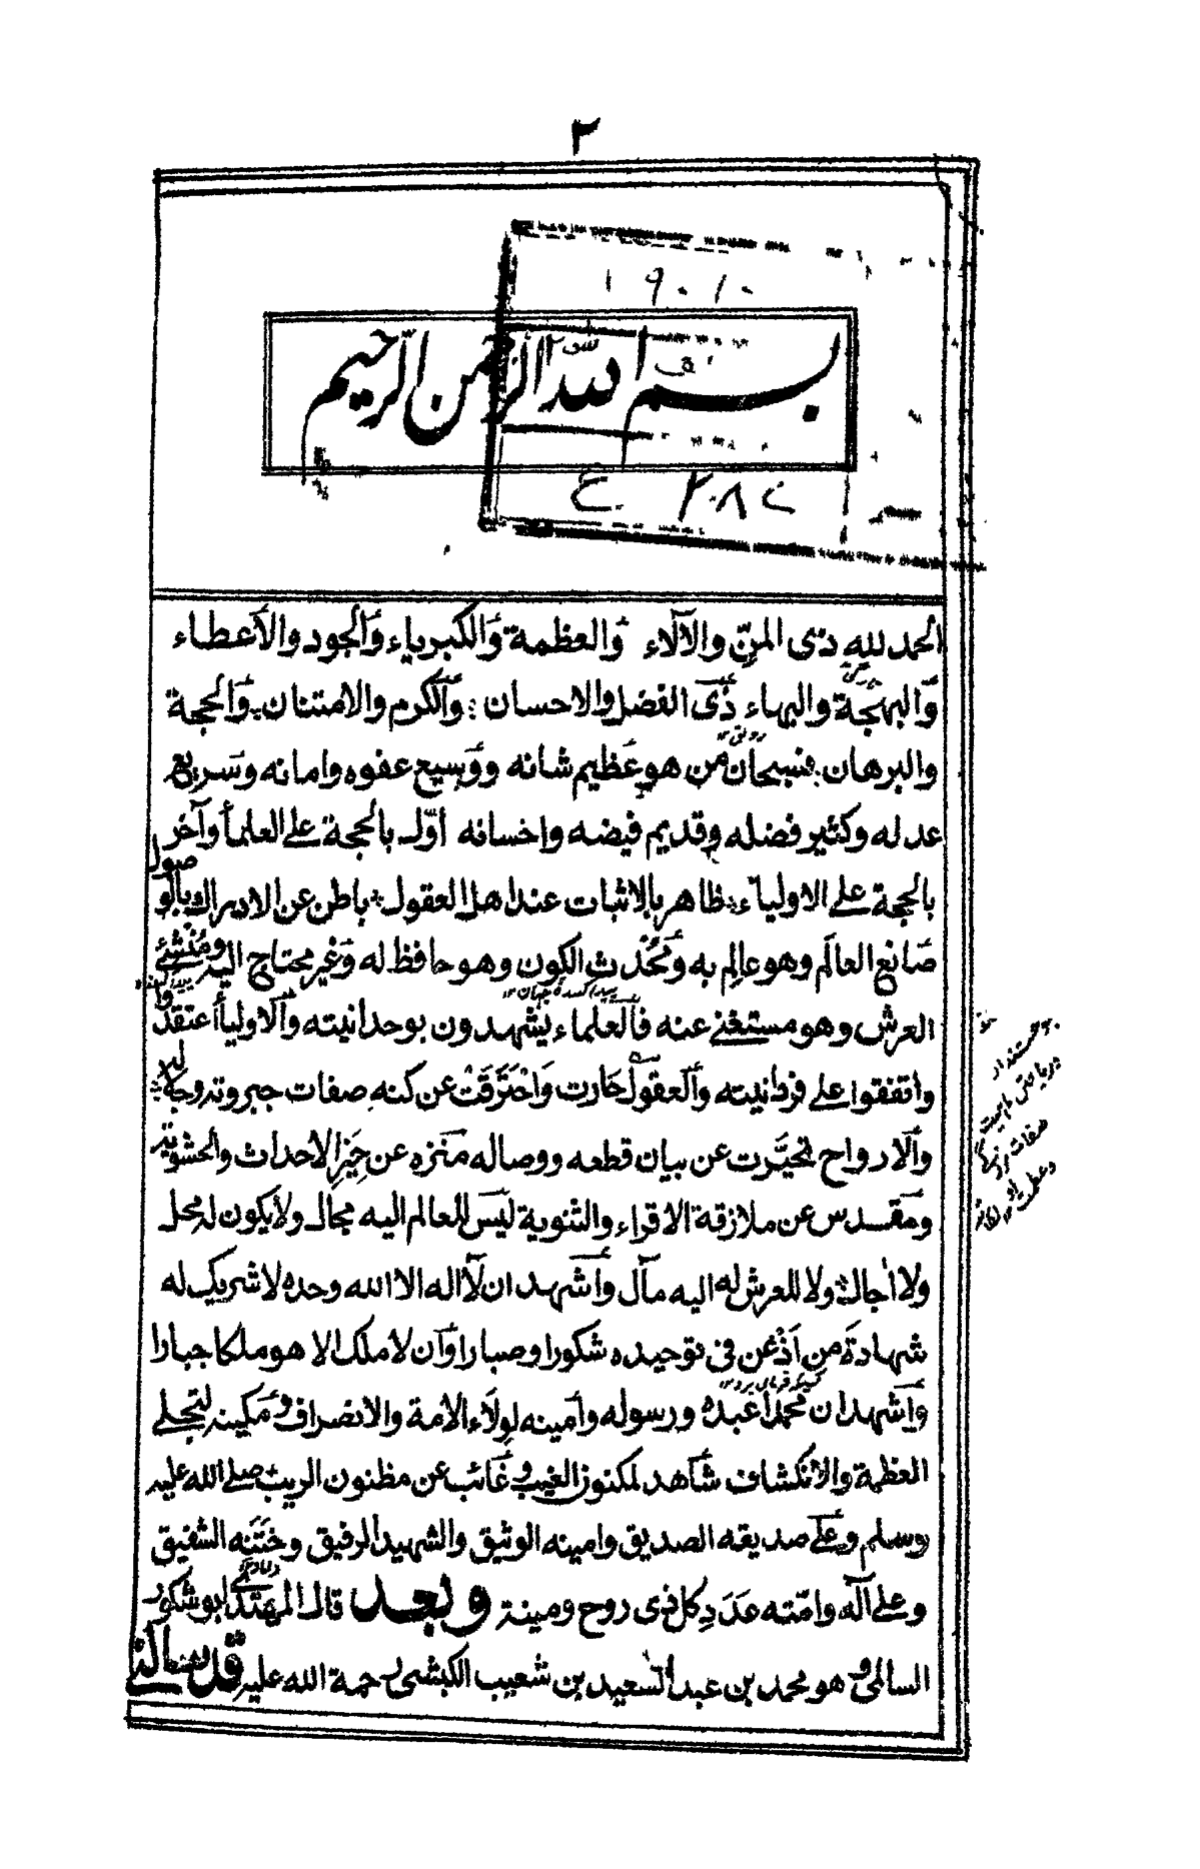 ٢
١٩٠١٠
بسم الله الرحمن الرحيم
ع ٢٠٨
الحمد لله ذى المنّ والآلاء والعظمة والكبرياء والجود والأعطاء
والبهجة والبهاء ذى الفضل والاحسان والكرم والامتنان والحجة
والبرهان فسبحان من هو عظيم شانه ووسيع عفوه وامانه وسريع
عدله وكثير فضله وقديم فيضه واحسانه اوّل بالحجة على العلمأ وآخر
بالحجة على الاولياء ظاهر بالاثبات عند اهل العقول باطن عن الادراك بالوصول
صانع العالم وهو عالم به ومحدث الكون وهو حافظ له وغير محتاج اليه ومنشئ
العرش وهو مستغنى عنه فالعلماء يشهدون بوحدانيته والاوليأ اعتقدوا
واتفقوا على فردانيته والعقول حارت واحترقت عن كنه صفات جبروته وجلاله
والارواح تحيّرت عن بيان قطعه ووصاله منزه عن حيز الاحداث والحشوية
ومقدس عن ملازقة الاقراء والثنوية ليس للعالم اليه مجال ولا يكون له محل
ولا اجال ولا للعرش له اليه مآل واشهد ان لا اله الا الله وحده لا شريك له
شهادة من اذعن فى توحيده شكورا وصبارا وان لا ملك الا هو ملكا جبارا
واشهد ان محمدا عبده ورسوله وأمينه لولاء الامة والانصراف ومكينه لتجلى
العظمة والانكشاف شاهد لمكنوز الغيب وغائب عن مظنون الريب صلى الله عليه
وسلم وعلى صديقه الصديق وامينه الوثيق والشهيد الرفيق وختنه الشفيق
وعلى آله وامته عدد كل ذى روح ومينة وبعد قال المهتدى ابو شكور
السالمى وهو محمد بن عبد السعيد بن شعيب الكبشى رحمة الله عليه قد سالنى